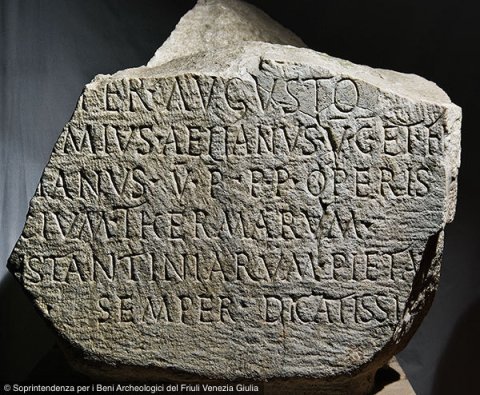 ER · AVGVSTO
MIVS · AELIANVS · V · C · ET F
IANVS · V · P · P P · OPERIS
IVM THERMARVM ·
STANTINIARVM · PIETA
SEMPER · DICATISSI
© Soprintendenza per i Beni Archeologici del Friuli Venezia Giulia